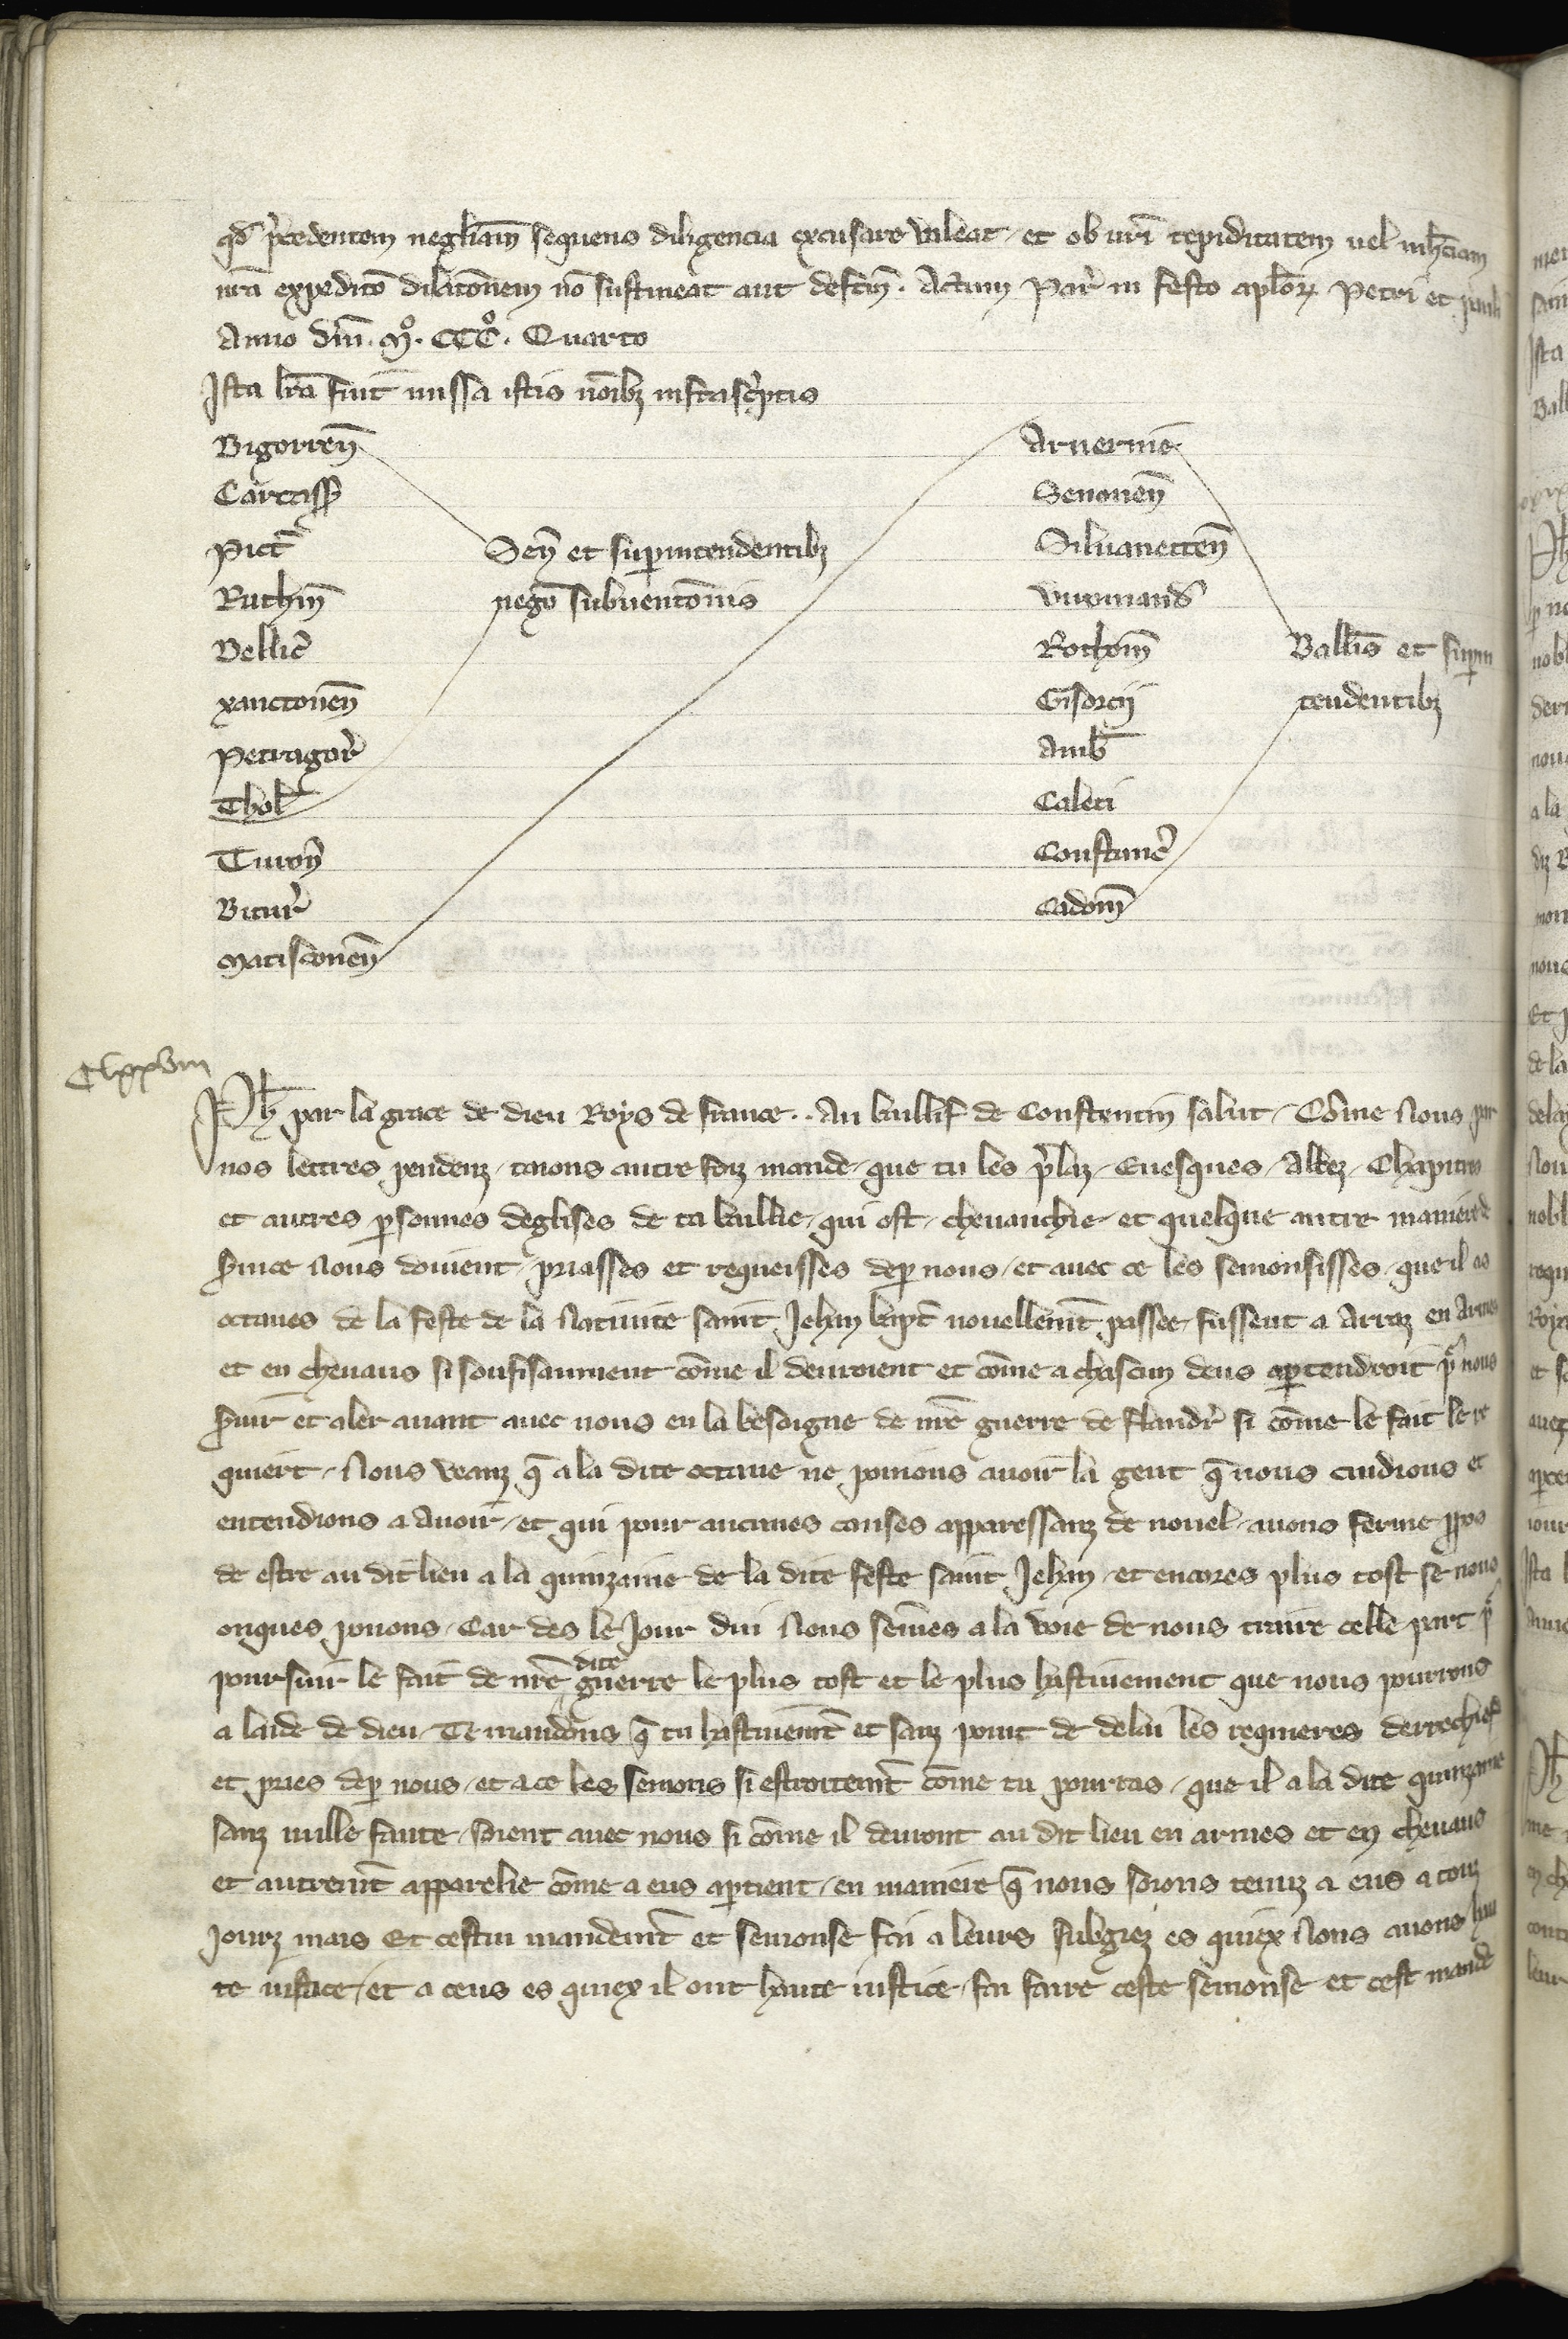 qd̕ p̕cedentem negligẽciam sequens diligencia excusare valeat / et ob vr̃i tepiditatem uel
nr̃a expedicõ dilacõnem nõ sustineat aut defcm̃ . Actum Par̕ in festo apl̃oꝝ Petri et pauli
Anno dñi . Mº. CCCº. Quarto
Ista lr̃a fuit missa istis nõibꝫ infrasc̕ptis
Bigorreñ
Carcass̕
Pict̃
Rutheñ
Bellic̃
Xanctoneñ
Petragor̃
Thol̃
Turoñ
Bitur̃
Matisconeñ
Señ et suꝑintendentibꝫ
nego subuentõnis
Aruernie
Senoneñ
Siluanecteñ
Viromand̕
Rothom̃
Gisorcij
Amb̃
Caleti
Constanc̃
Cadom̃
Balliũis et suꝑin
tendentibꝫ
Clxxviii
Ph̃ par la grace de dieu Roys de france . . Au baillif de Constentin salut / Cõme Nous par
nos lettres pendenz / taions autre foiz mande / que tu les p̃laz / Euesques / Abbez / Chapitres
et autres ꝑsonnes deglises de ta baillie / qui ost / cheuauchie / et quelque autre maniere de
s̃uice Nous doiuent / priasses et requeisses deꝑ nous / et auec ce les semonsisses / que il as
octaues de la feste de la Natiuite saint Jehan bapt̃ nouellem̃t passee / fussent a Arraz en armes
et en cheuaus si soufisaument cõme il deuroient et cõme a chascun deus aꝑtendroit pᵒ nous
s̃uir et aler auant auec nous en la besoigne de nr̃e guerre de flandr̃ si cõme le fait le re
quiert / Nous veanz q̃ a la dite octaue ne poions auoir la gent q̃ nous cuidions et
entendions a auoir / et qui pour aucunes causes apparessanz de nouel / auons ferme ꝓpos
de estre au dit lieu a la quinzaine de la dite feste saint Jehan / et encores plus tost se nous
onques poons / Car des le Jour dui Nous sem̃es a la voie de nous traire celle part pᵒ
poursuir le fait de nr̃e dite guerre le plus tost et le plus hastiuement que nous pourrons
a laide de dieu / Te mandons q̃ tu hastiuem̃t et sanz point de delai les requieres derrechief
et pries deꝑ nous / et a ce les semons si estroitem̃t cõme tu pourras / que il a la dite quinzaine
sanz nulle faute / soient auec nous si cõme il deuront au dit lieu en armes et en cheuaus
et autrem̃t apparelie cõme a eus aꝑtient / en maniere q̃ nous soions tenuz a eus a touz
jourz mais Et cestui mandem̃t et semonse fai a leurs subgiez es quiex Nous auons hau
te iustice / et a ceus es quiex il ont haute iustice / fai faire ceste semonse et cest mande